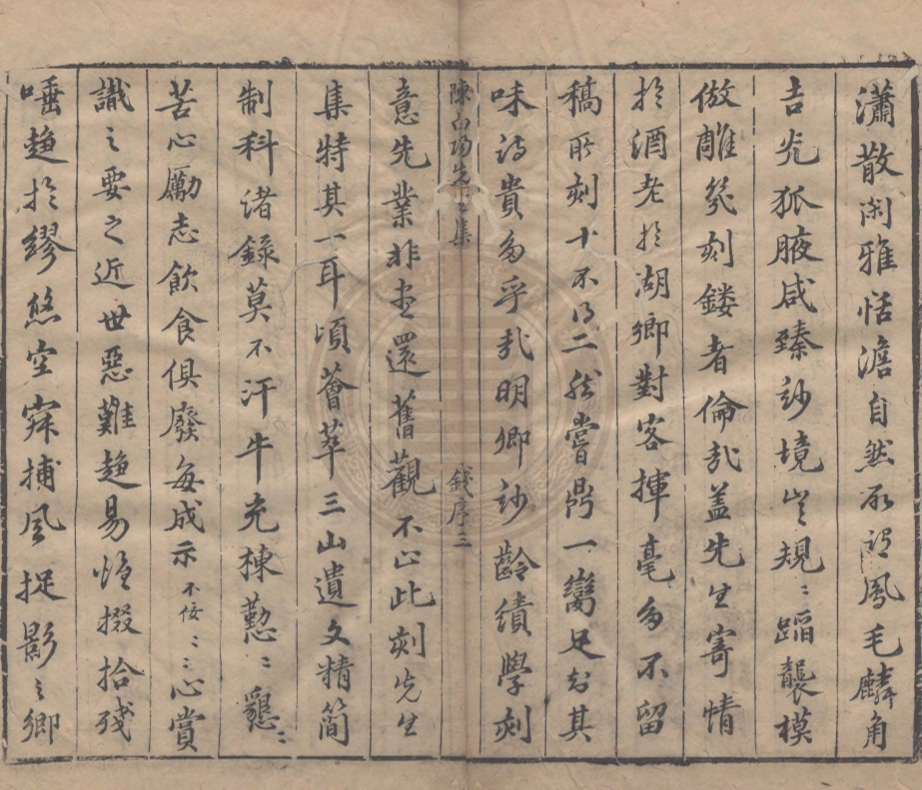 瀟散閑雅恬澹自然所謂鳳毛麟角
吉光狐腋咸臻妙境豈規〻蹈襲模
倣雕氣刻鏤者倫哉蓋先生寄情
於酒老於湖鄉對客揮毫多不留
稿所刻十不得二然嘗鼎一臠足知其
味詩貴多乎哉明卿妙齡績學刻
陳白陽先生集
錢序三
意先業非直還舊觀不止此刻先生
集特其一耳頃薈萃三山遺文精簡
制科諸錄莫不汗牛充棟懃〻懇〻
苦心勵志飲食俱廢每成示不佞〻〻心賞
識之要之近世惡難趨易惟掇拾殘
唾趨於繆悠空寂捕風捉影之鄉